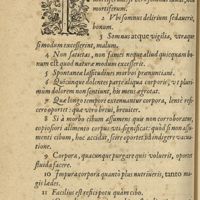 mortiferum.
2 Vbi somnus delirium sedauerit,
bonum.
3 Somnus atque vigilia, vtraque
si modum excesserint, malum.
4 Non satietas, non fames neque aliud quicquam bo-
num est quod naturæ modum excesserit.
5 Spontaneæ lassitudines morbos prænunciant.
6 Quicunque dolentes parte aliqua corporis, vt pluri-
mum dolorem non sentiunt, his mens ægrotat.
7 Quæ longo tempore extenuantur corpora, lentè re-
ficere oportet: quæ vero breui, breui.
8 Si à morbo cibum assumens quis non corroboratur,
copiosiori alimento corpus vti significat: quod si non assu-
menti cibum, hoc accidat, scire oportet euacua-
tione.
9 Corpora, quacunque purgare quis voluerit, oportet
fluida facere.
10 Impura corpora quanto plus nutriueris, tanto ma-
gis lædes.
11 Facilius est refici potu quàm cibo.